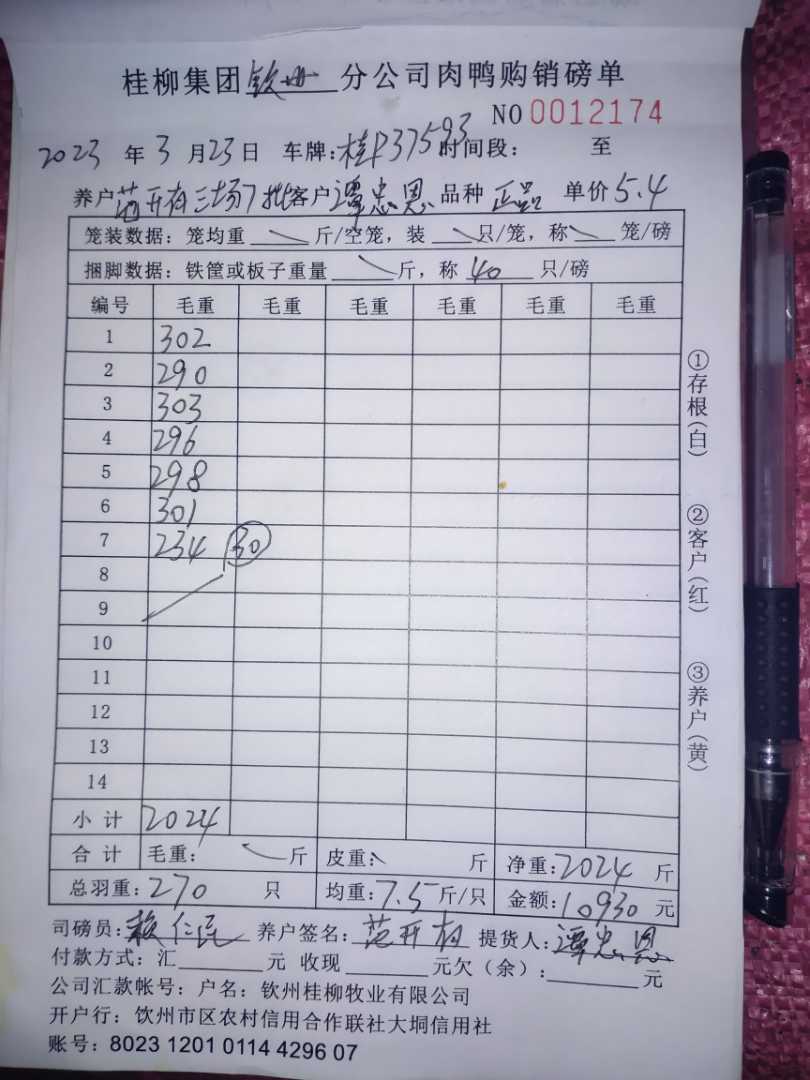 桂柳集团钦州分公司肉鸭购销磅单
NO 0012174
2023 年 3 月 23 日 车牌:桂P37593 时间段: 至
养户范开有三场7批 客户谭忠恩 品种 正品 单价5.4
笼装数据:笼均重 斤/空笼,装 只/笼,称 笼/磅
捆脚数据:铁筐或板子重量 斤,称 40 只/磅
编号 毛重 毛重 毛重 毛重 毛重 毛重
1 302
2 290
3 303
4 296
5 298
6 301
7 234 30
8
9
10
11
12
13
14
小计 2024
合计 毛重: 斤 皮重: 斤 净重:2024 斤
总羽重:270 只 均重:7.5斤/只 金额:10930 元
司磅员:赖仁 养户签名:范开 提货人:谭忠恩
付款方式:汇 元 收现 元欠(余): 元
公司汇款帐号:户名:钦州桂柳牧业有限公司
开户行:饮州市区农村信用合作联社大垌信用社
账号:8023 1201 0114 4296 07
①存根(白)
②客户(红)
③养户(黄)